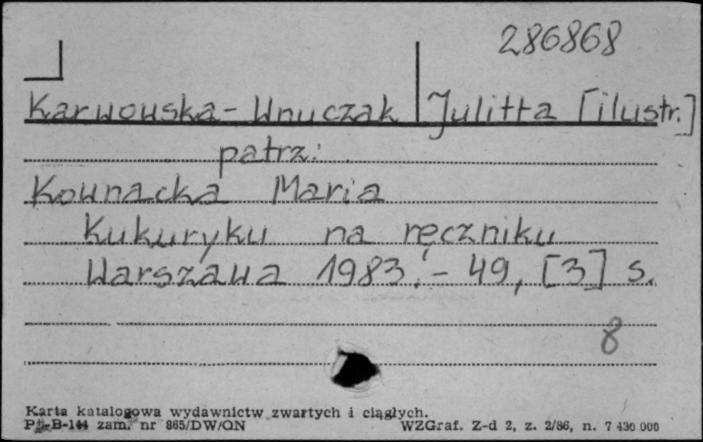 286868
Karwowska-Wnuczak Julitta [ilustr.]
patrz:
Kownacka Maria
Kukuryku na ręczniku
Warszawa 1983.- 49, [3] s.
8
Karta katalogowa wydawnictw zwartych i ciągłych.
Pu-B-144 zam. nr 865/DW/ON WZGraf. Z-d 2, z. 2/86, n. 7 430 000